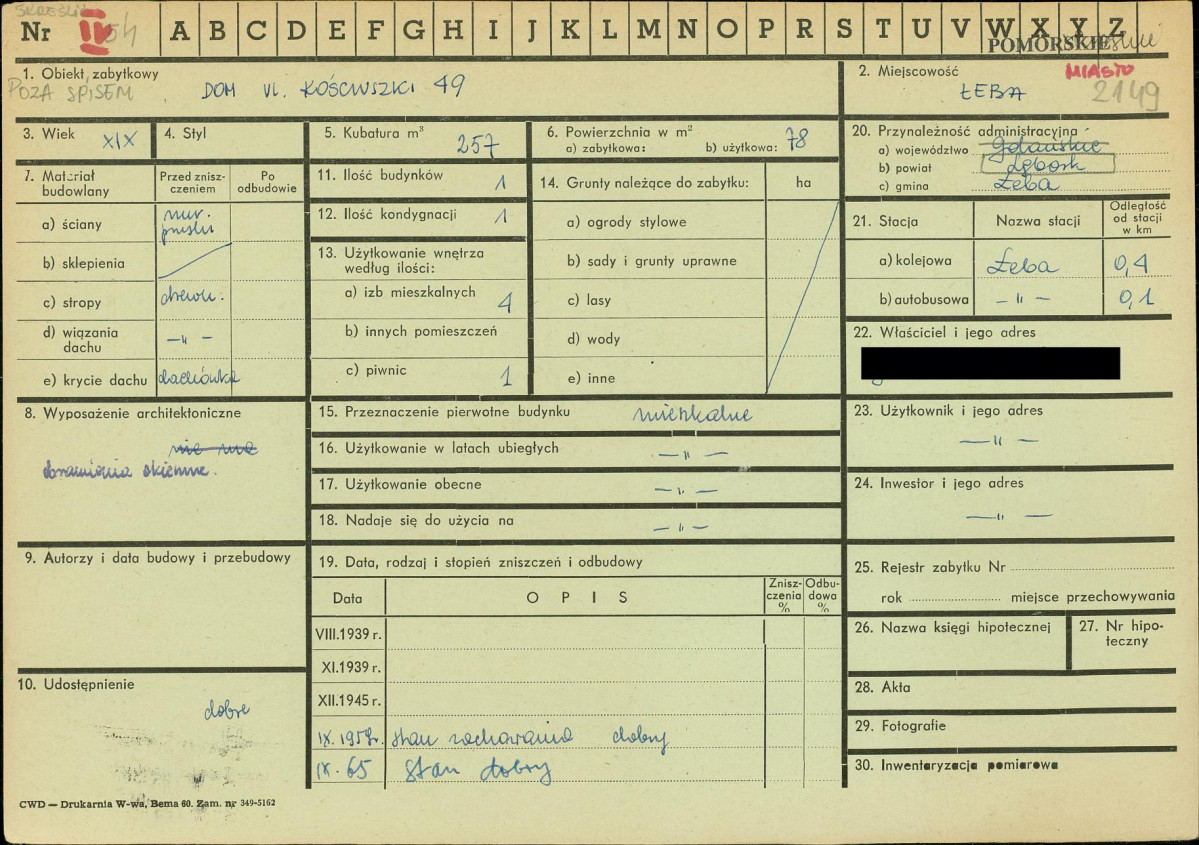 SKREŚLIĆ
Nr IV 54 A B C D E F G H I J K L M N O P R S T U V W X Y Z
POMORSKIE
1. Obiekt zabytkowy
POZA SPISEM
DOM Ul. KOŚCIUSZKI 49
2. Miejscowość
MIASTO
ŁEBA 2149
3. Wiek XIX
4. Styl
5. Kubatura m³
257
6. Powierzchnia w m²
a) zabytkowa: b) użytkowa: 78
20. Przynależność administracyjna
a) województwo Gdańskie
b) powiat Lębork
c) gmina Łeba
7. Materiał budowlany
Przed zniszczeniem
Po odbudowie
a) ściany mur. pruski
b) sklepienia
c) stropy drewn.
d) wiązania dachu —„—
e) krycie dachu dachówka
11. Ilość budynków 1
12. Ilość kondygnacji 1
13. Użytkowanie wnętrza według ilości:
a) izb mieszkalnych 4
b) innych pomieszczeń
c) piwnic 1
14. Grunty należące do zabytku: ha
a) ogrody stylowe
b) sady i grunty uprawne
c) lasy
d) wody
e) inne
21. Stacja
Nazwa stacji
Odległość od stacji w km
a) kolejowa Łeba 0,4
b) autobusowa —„— 0,1
22. Właściciel i jego adres
8. Wyposażenie architektoniczne
nie ma
obramienia okienne.
15. Przeznaczenie pierwotne budynku mieszkalne
16. Użytkowanie w latach ubiegłych —„—
17. Użytkowanie obecne —„—
18. Nadaje się do użycia na —„—
23. Użytkownik i jego adres
—„—
24. Inwestor i jego adres
—„—
9. Autorzy i data budowy i przebudowy
19. Data, rodzaj i stopień zniszczeń i odbudowy
Data OPIS Zniszczenia % Odbudowa %
VIII.1939 r.
XI.1939 r.
XII.1945 r.
IX.1957r. stan zachowania dobry
IX.65 stan dobry
25. Rejestr zabytku Nr
rok miejsce przechowywania
26. Nazwa księgi hipotecznej
27. Nr hipoteczny
10. Udostępnienie
dobre
28. Akta
29. Fotografie
30. Inwentaryzacja pomiarowa
CWD — Drukarnia W-wa, Bema 60. Zam. nr 349-5162